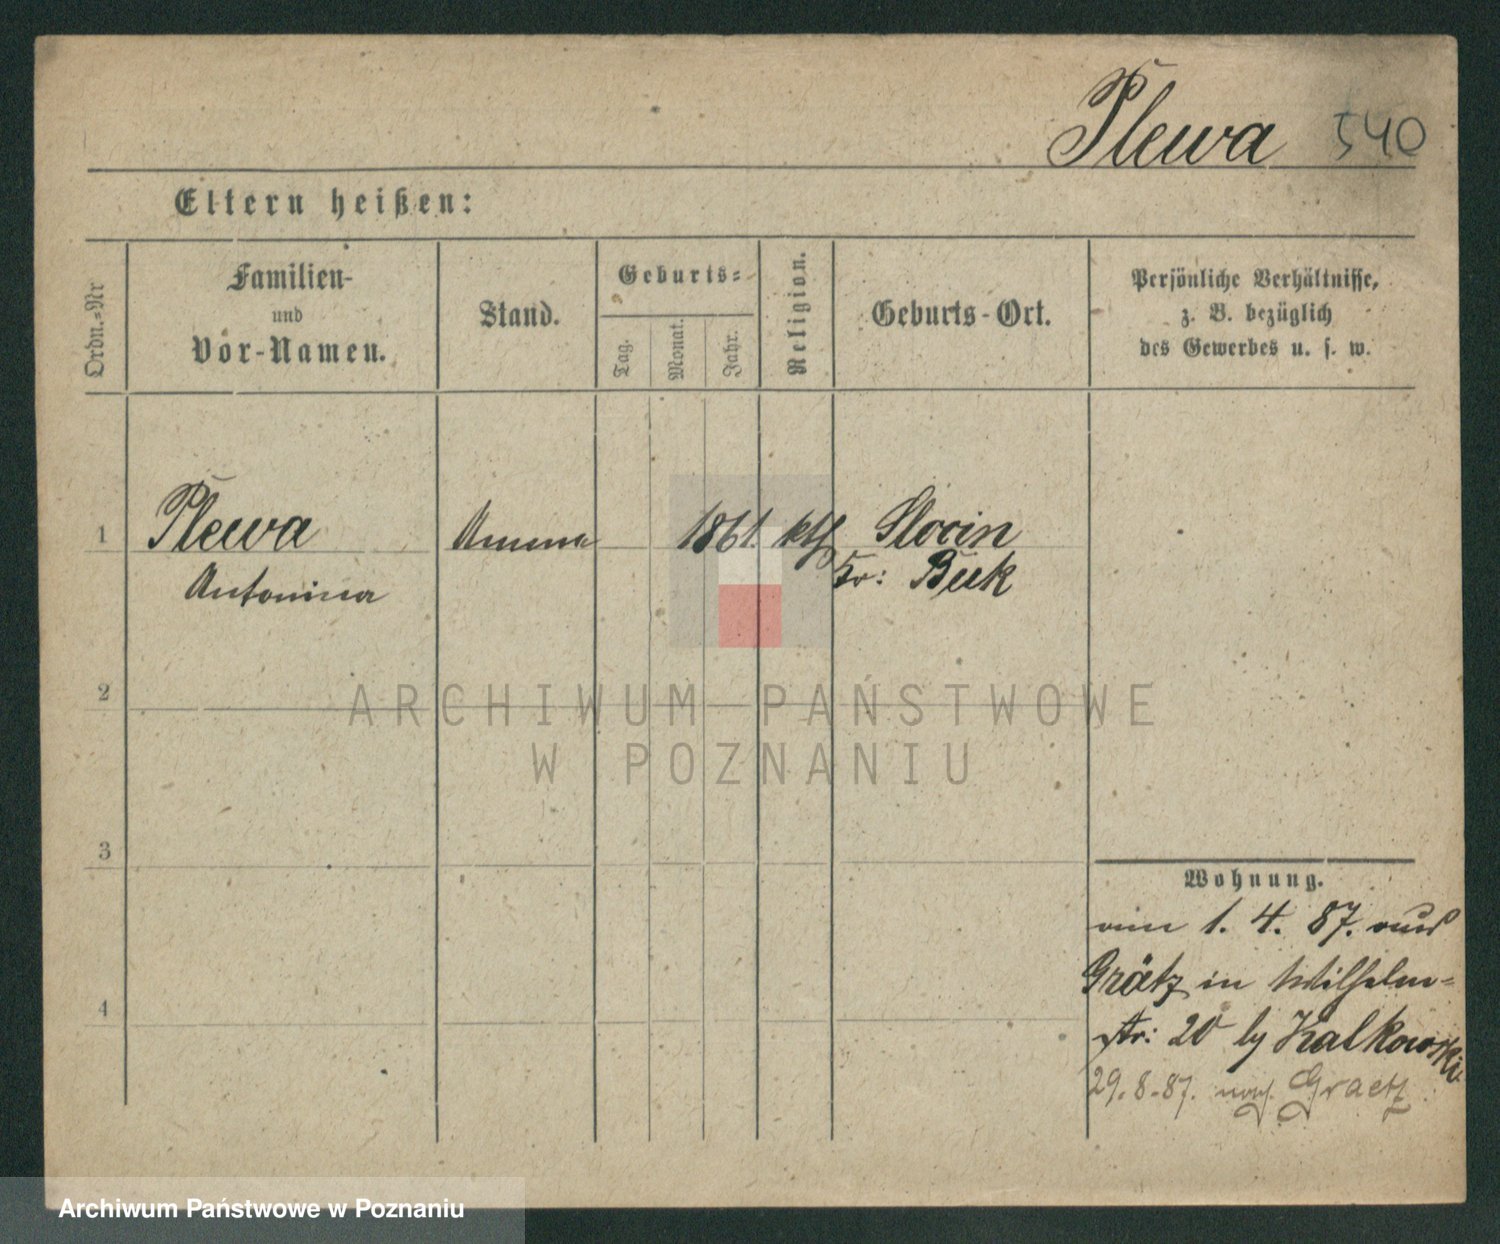 Plewa 540
Eltern heißen:
Ordn.-Nr
Familien-
und
Vor-Namen.
Stand.
Geburts-
Tag.
Monat.
Jahr.
Religion.
Geburts-Ort.
Persönliche Verhältnisse,
z. B. bezüglich
des Gewerbes u. s. w.
1 Plewa Amme 1861. kth Slocin
Antonina Kr: Buk
2
ARCHIWUM PAŃSTWOWE
W POZNANIU
3
Wohnung.
1. 4. 87. aus
Grätz in Wilhelm-
str: 20 by Kalkowski
29.8.87. nach Graetz
4
Archiwum Państwowe w Poznaniu